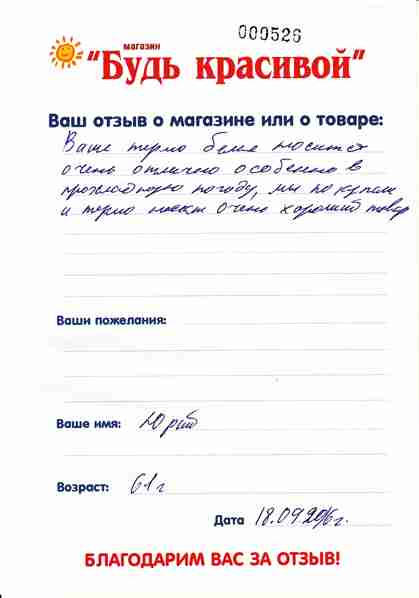 000526
магазин
"Будь красивой"
Ваш отзыв о магазине или о товаре:
Ваше термо белье носится
очень отлично особенно в
прохладную погоду, мы покупали
и термо носки очень хороший товар
Ваши пожелания:
Ваше имя: Юрий
Возраст: 61 г
Дата 18.09.2016 г.
БЛАГОДАРИМ ВАС ЗА ОТЗЫВ!